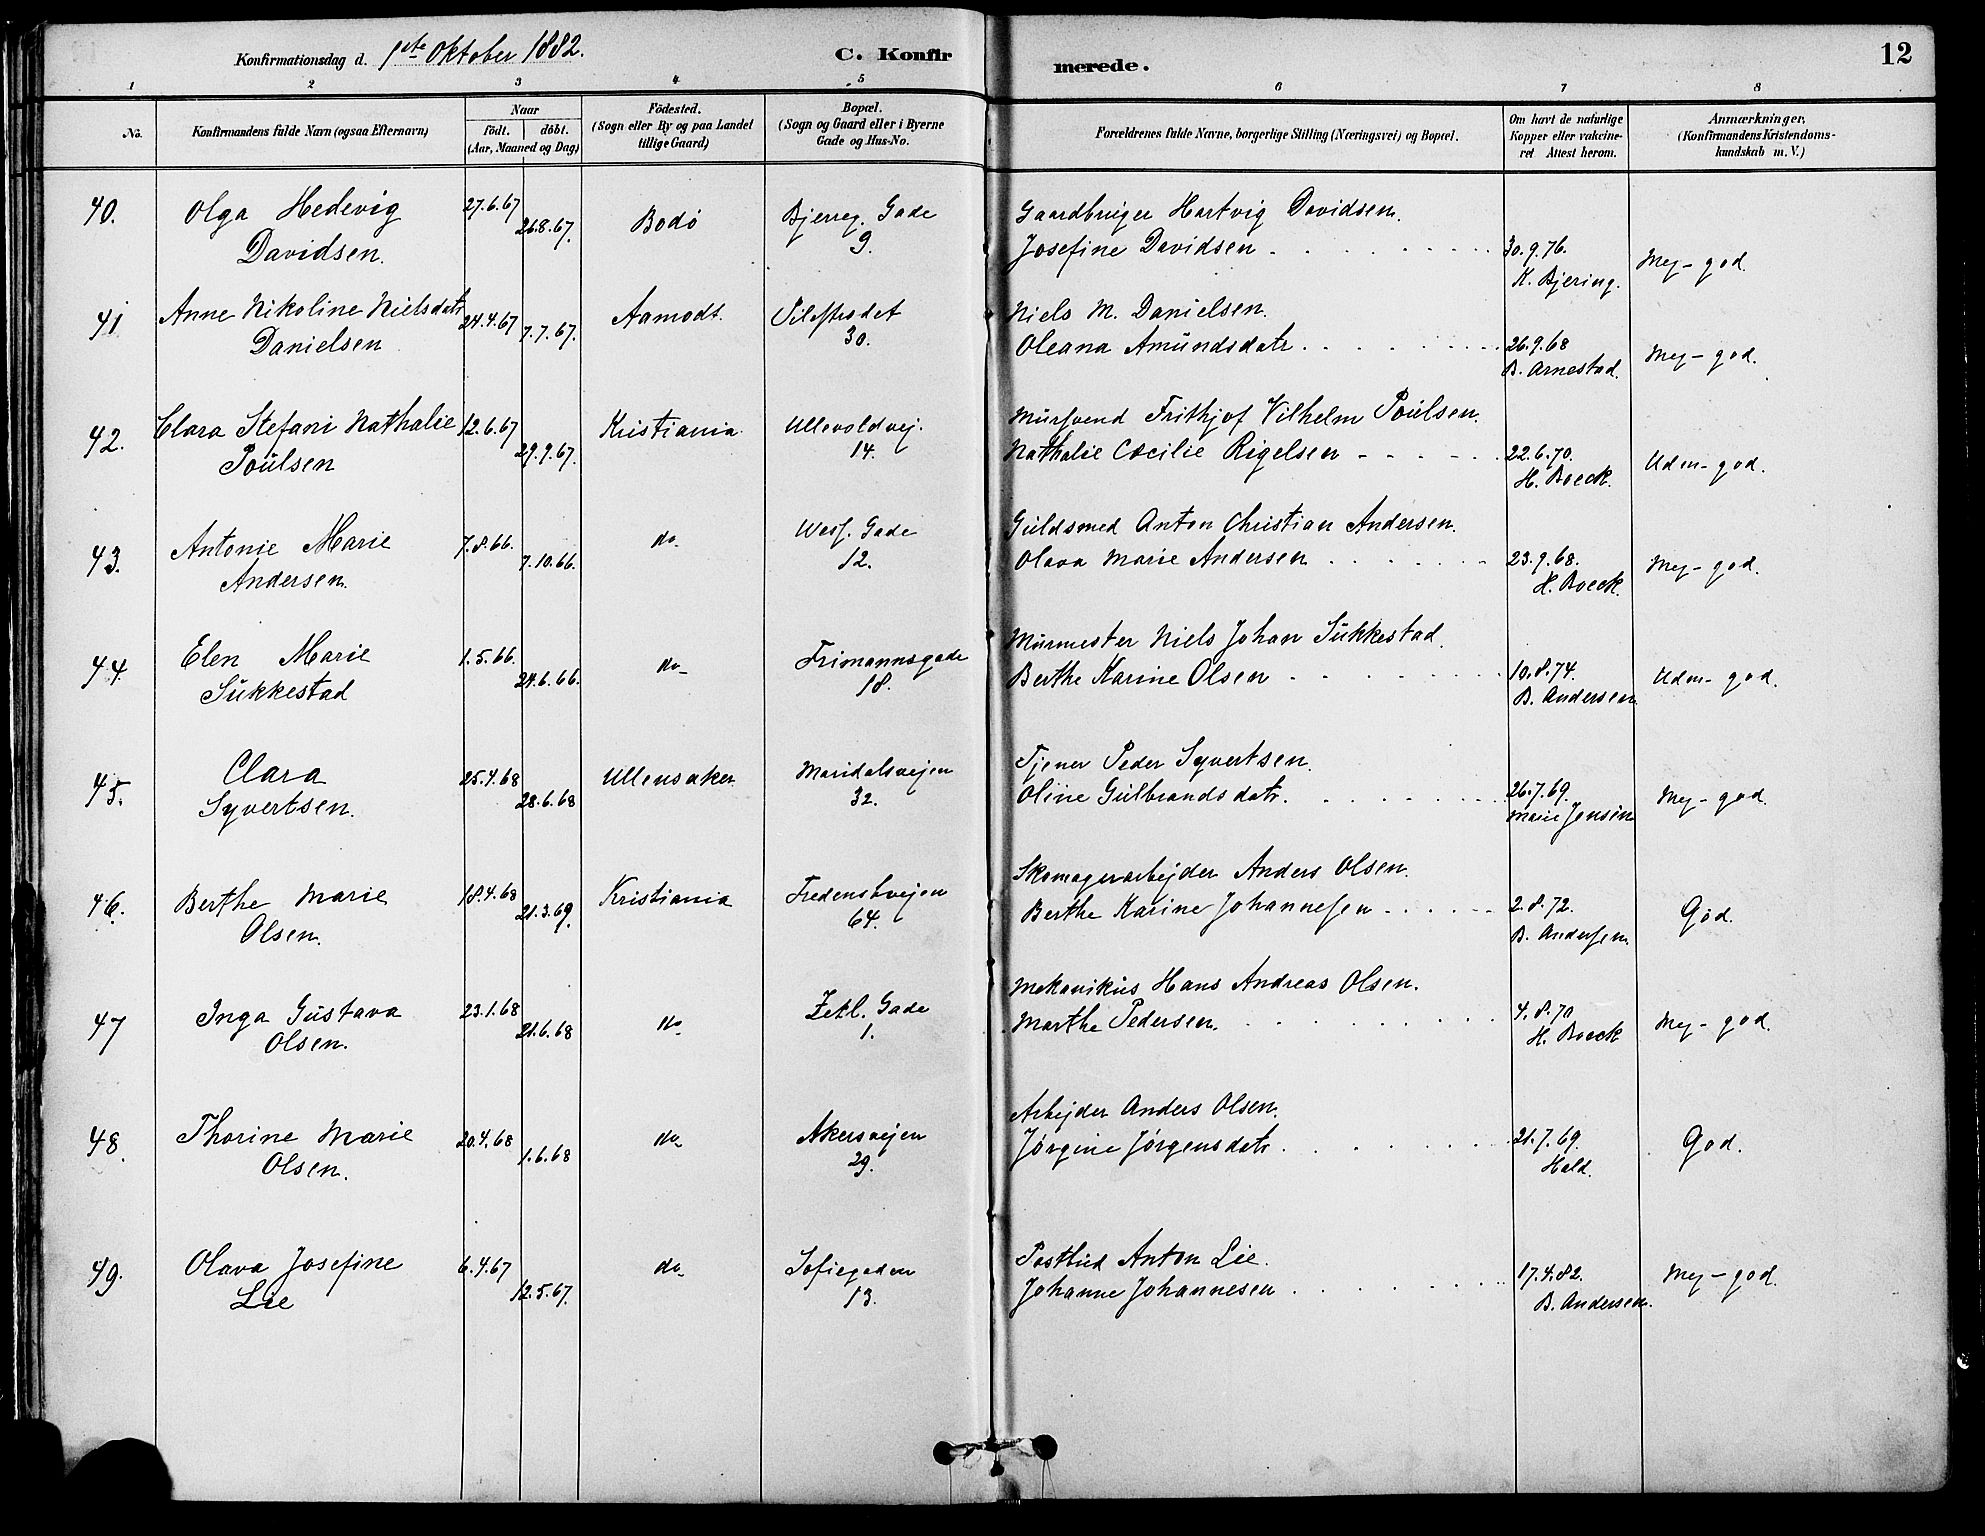 Konfirmationsdag d. 1ste Oktober 1882.
C. Konfirmerede.
12
1 2 3 4 5 6 7 8
No.
Konfirmandens fulde Navn (ogsaa Efternavn)
Naar
födt. döbt.
(Aar, Maaned og Dag)
Födested.
(Sogn eller By og paa Landet
tillige Gaard)
Bopæl.
(Sogn og Gaard eller i Byerne
Gade og Hus-No.
Forældrenes fulde Navne, borgerlige Stilling (Næringsvei) og Bopæl.
Om havt de naturlige
Kopper eller vakcine-
ret Attest herom.
Anmærkninger.
(Konfirmandens Kristendoms-
kundskab m. V.)
40. Olga Hedevig 27.6.67 26.8.67. Bodö Bjerreg. Gade Gaardbruger Hartvig Davidsen.
Davidsen. 9. Josefine Davidsen 30.9.76. Meg-god.
K. Bjering.
41. Anne Nikoline Nielsdatr 24.4.67 7.7.67. Aamodt. Pilestrædet Niels M. Danielsen.
Danielsen 30. Oleana Amundsdatr. 26.9.68 Meg-god.
B. Arnestad.
42. Clara Stefani Nathalie 12.6.67 29.9.67. Kristiania Ullevoldvej. Mursvend Frithjof Vilhelm Poulsen.
Poulsen 14. Nathalie Cæcilie Rigelsen 22.6.70. Udm-god.
H. Boeck.
43. Antonie Marie 7.8.66. 7.10.66. do Wess. Gade Guldsmed Anton Christian Andersen.
Andersen. 12. Olava Marie Andersen 23.9.68. Meg-god.
H. Boeck.
44. Elen Marie 1.5.66. 24.6.66. do Frimannsgade Murmester Niels Johan Sukkestad.
Sukkestad 18. Berthe Karine Olsen 10.8.74. Udm-god.
B. Andersen.
45. Clara 25.4.68 28.6.68 Ullensaker Maridalsvejen Tjener Peder Syvertsen.
Syvertsen. 32. Oline Gulbrandsdatr. 26.7.69. Meg-god.
Marie Jensen
46. Berthe Marie 18.4.68 21.3.69. Kristiania Fredensbvejen Skomagerarbejder Anders Olsen.
Olsen. 64. Berthe Karine Johannesen 2.8.72. God.
B. Andersen.
47 Inga Gustava 23.1.68 21.6.68 do Zetl. Gade Mekanikus Hans Andreas Olsen.
Olsen. 1. Marthe Pedersen. 4.8.70 Meg-god.
H. Boeck
48. Thorine Marie 20.4.68 1.6.68 do Akersvejen Arbejder Anders Olsen.
Olsen. 29. Jørgine Jørgensdatr. 21.7.69. God.
Held.
49. Olava Josefine 6.4.67 12.5.67. do Sofiegaden Postbud Anton Lie.
Lie 13. Johanne Johannesen 17.4.82. Meg-god.
B. Andersen.